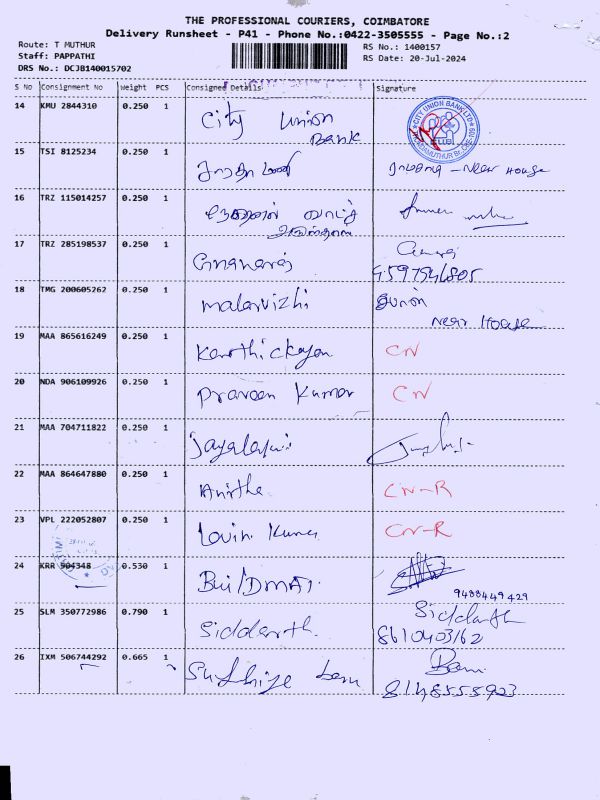 THE PROFESSIONAL COURIERS, COIMBATORE
Delivery Runsheet - P41 - Phone No.:0422-3505555 - Page No.:2
Route: T MUTHUR
RS No.: 1400157
Staff: PAPPATHI
RS Date: 20-Jul-2024
DRS No.: DCJB140015702
S No Consignment No Weight PCS Consignee Details Signature
14 KMU 2844310 0.250 1 City Union
Bank
CITY UNION BANK LTD
CUB
15 TSI 8125234 0.250 1 - Near House
16 TRZ 115014257 0.250 1
17 TRZ 285198537 0.250 1 Gnanaraj
18 TMG 200605262 0.250 1 Malarvizhi
Near House
19 MAA 865616249 0.250 1 Karthickeyan CN
20 NDA 906109926 0.250 1 Praveen Kumar CN
21 MAA 704711822 0.250 1
22 MAA 864647880 0.250 1 CN-R
23 VPL 222052807 0.250 1 CN-R
24 KRR 904348 0.530 1
9488449429
25 SLM 350772986 0.790 1 Siddarth. Siddarth
8610403162
26 IXM 506744292 0.665 1
8148555923